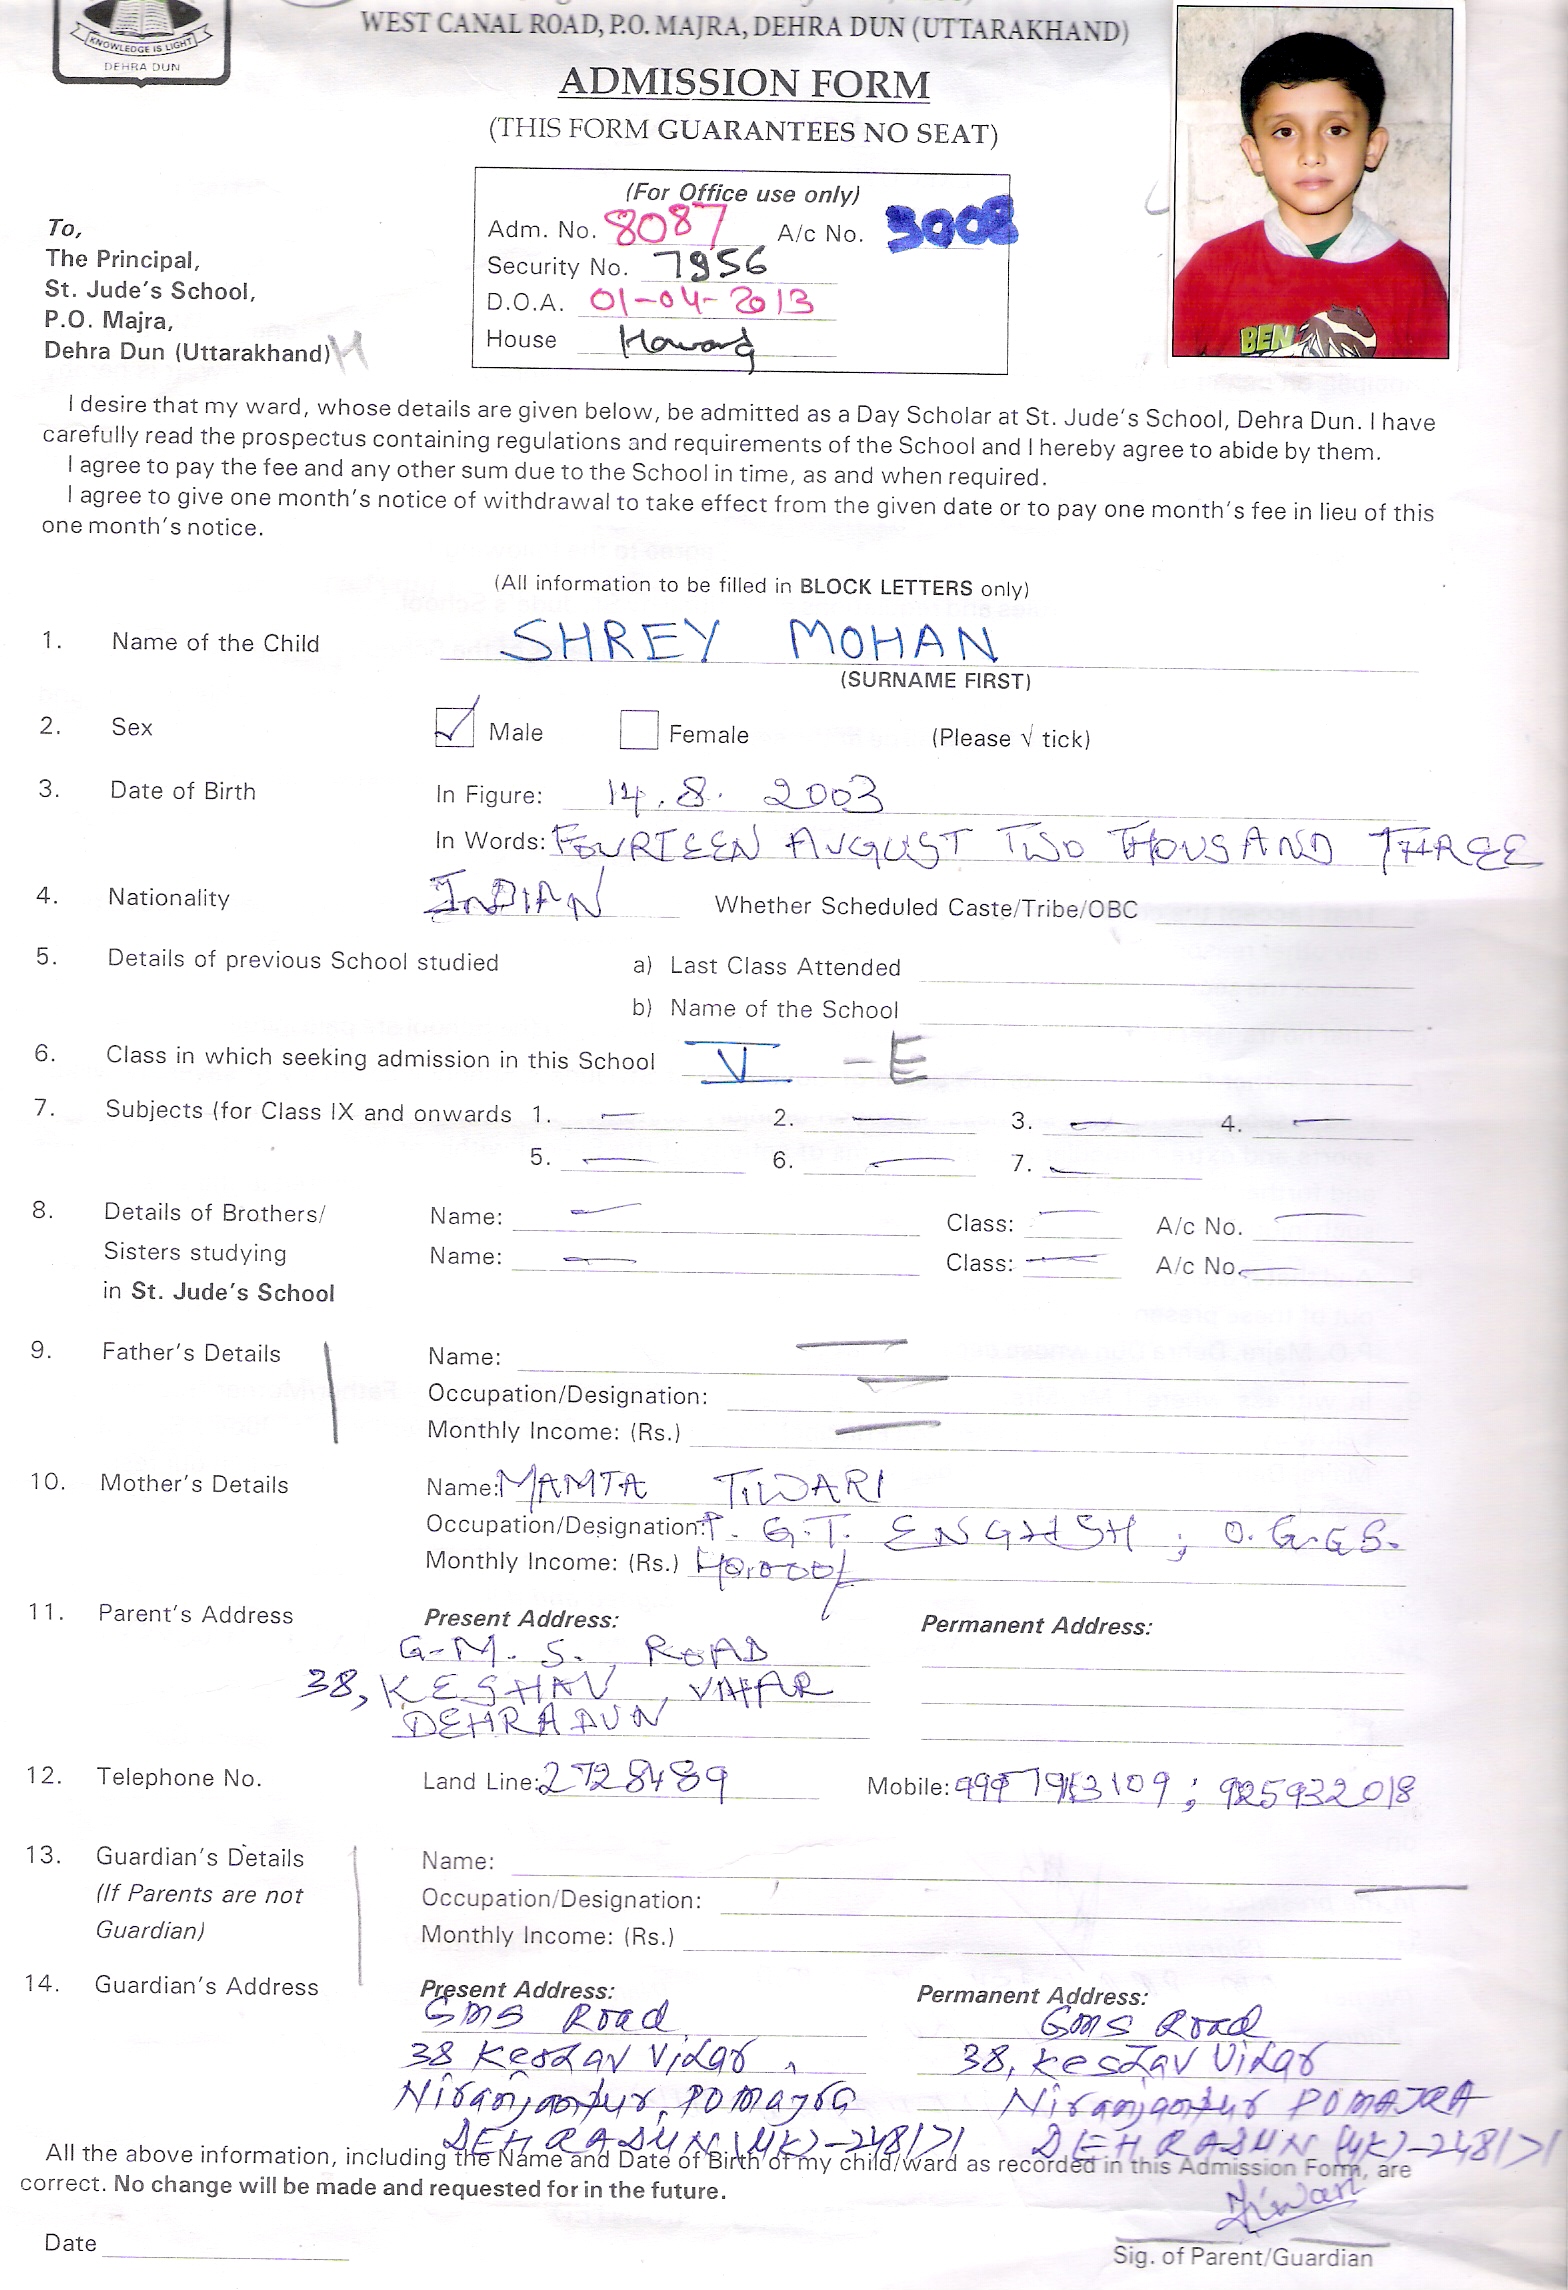 KNOWLEDGE IS LIGHT
DEHRA DUN
WEST CANAL ROAD, P.O. MAJRA, DEHRA DUN (UTTARAKHAND)
ADMISSION FORM
(THIS FORM GUARANTEES NO SEAT)
(For Office use only)
Adm. No. 8087 A/c No. 3008
Security No. 7956
D.O.A. 01-04-2013
House Howard
To,
The Principal,
St. Jude's School,
P.O. Majra,
Dehra Dun (Uttarakhand) H
BEN
I desire that my ward, whose details are given below, be admitted as a Day Scholar at St. Jude's School, Dehra Dun. I have
carefully read the prospectus containing regulations and requirements of the School and I hereby agree to abide by them.
I agree to pay the fee and any other sum due to the School in time, as and when required.
I agree to give one month's notice of withdrawal to take effect from the given date or to pay one month's fee in lieu of this
one month's notice.
(All information to be filled in BLOCK LETTERS only)
1. Name of the Child SHREY MOHAN
(SURNAME FIRST)
2. Sex ✓ Male Female (Please √ tick)
3. Date of Birth In Figure: 14.8.2003
In Words: FOURTEEN AUGUST TWO THOUSAND THREE
4. Nationality INDIAN Whether Scheduled Caste/Tribe/OBC
5. Details of previous School studied a) Last Class Attended
b) Name of the School
6. Class in which seeking admission in this School V - E
7. Subjects (for Class IX and onwards 1. — 2. — 3. — 4. —
5. — 6. — 7. —
8. Details of Brothers/ Name: — Class: — A/c No. —
Sisters studying Name: — Class: — A/c No. —
in St. Jude's School
9. Father's Details Name: —
Occupation/Designation: —
Monthly Income: (Rs.) —
10. Mother's Details Name: MAMTA TIWARI
Occupation/Designation: P.G.T. ENGLISH ; O.G.G.S.
Monthly Income: (Rs.) 40,000/
11. Parent's Address Present Address: Permanent Address:
G.M.S. ROAD
38, KESHAV VIHAR
DEHRADUN
12. Telephone No. Land Line: 2728489 Mobile: ; 925932018
13. Guardian's Details Name:
(If Parents are not Occupation/Designation: —
Guardian) Monthly Income: (Rs.)
14. Guardian's Address Present Address: Permanent Address:
GMS Road GMS Road
38 Keshav Vihar, 38, Keshav Vihar
Niranjanpur, PO Majra Niranjanpur PO MAJRA
DEHRADUN (UK)-248171 DEHRADUN (UK)-248171
All the above information, including the Name and Date of Birth of my child/ward as recorded in this Admission Form, are
correct. No change will be made and requested for in the future.
Tiwari
Date Sig. of Parent/Guardian